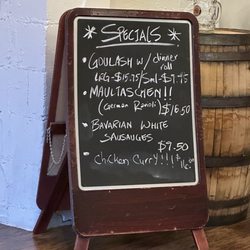 * Specials *
• Goulash w/ dinner
roll
LRG-$15.75/Sml-$7.45
• Maultaschen!!
(German Ravioli)
$16.50
• Bavarian White
Sausauges
$7.50
• Chicken Curry!!!